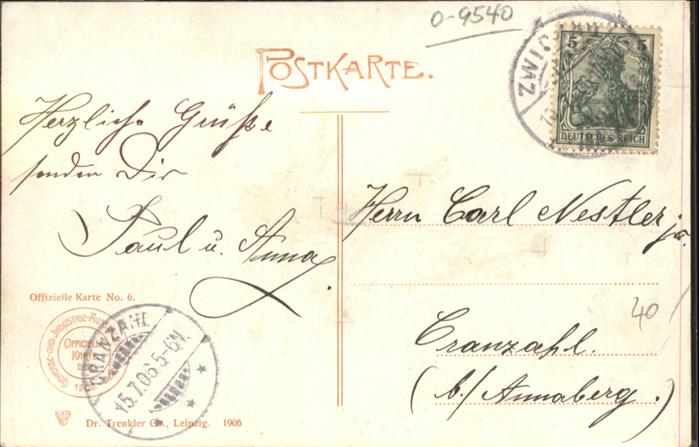 0-9540
POSTKARTE.
ZWICKAU
5 5
DEUTSCHES REICH
Herzliche Grüße
senden Dir
Paul u. Anna.
Herrn Carl Nestler jr.
Cranzahl.
(b/Annaberg.)
40/
Offizielle Karte No. 6.
OFFICIELLE
KARTE
1906
CRANZAHL
15.7.06.5-6N.
Dr. Trenkler Co., Leipzig. 1906